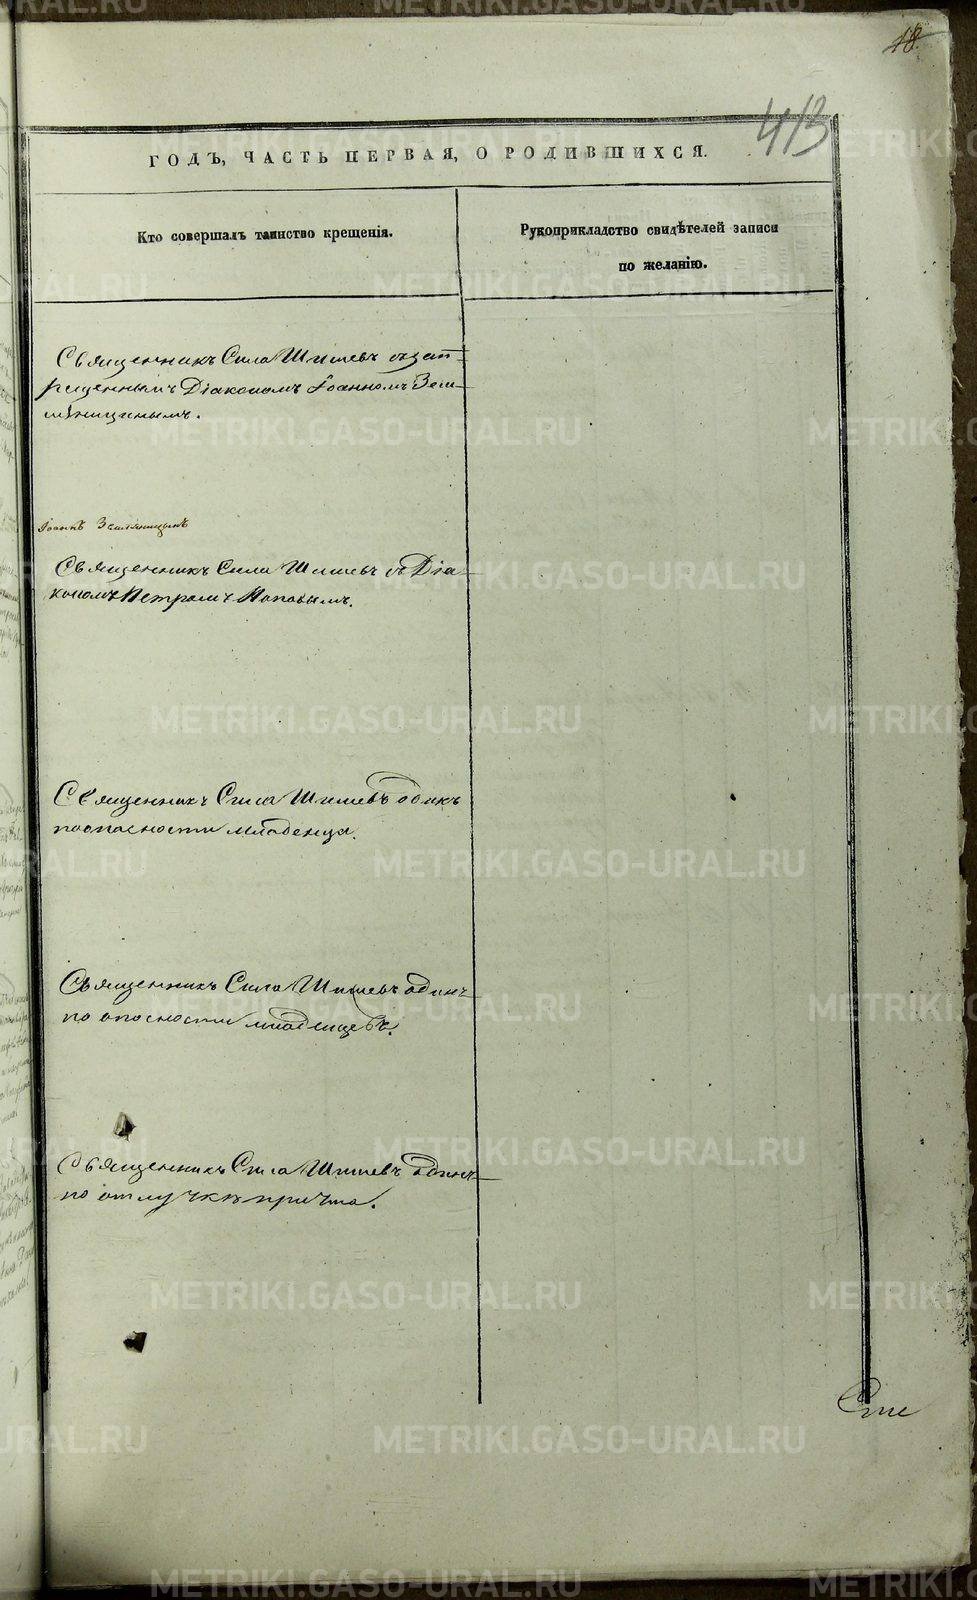 18.
413
ГОДЪ, ЧАСТЬ ПЕРВАЯ, О РОДИВШИХСЯ.
Кто совершалъ таинство крещенія.
Рукоприкладство свидѣтелей записи
по желанію.
Священникъ Сила Шишевъ съ зап-
рещеннымъ Діакономъ Іоанномъ Зем-
ляницынымъ.
Іоаннъ Земляницынъ
Священникъ Сила Шишевъ съ Діа-
кономъ Петромъ Поповымъ.
Священникъ Сила Шишевъ одинъ
по опасности младенца.
Священникъ Сила Шишевъ одинъ
по опасности младенцевъ.
Священникъ Сила Шишевъ одинъ
по отлучкѣ причта.
METRIKI.GASO-URAL.RU